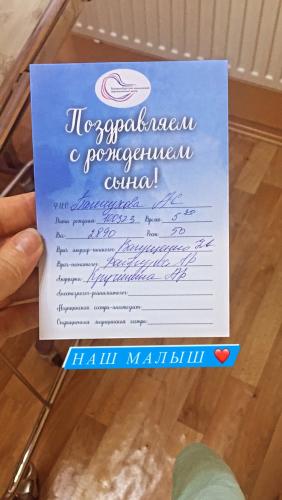 Поздравляем
с рождением
сына!
Ф.И.О. АС
Дата рождения Время 5 20
Вес 2890 Рост 50
Врач акушер-гинеколог
Врач-неонатолог АР
Акушерка Кручинина АР
Анестезиолог-реаниматолог
Медицинская сестра-анестезист
Операционная медицинская сестра
НАШ МАЛЫШ ❤️